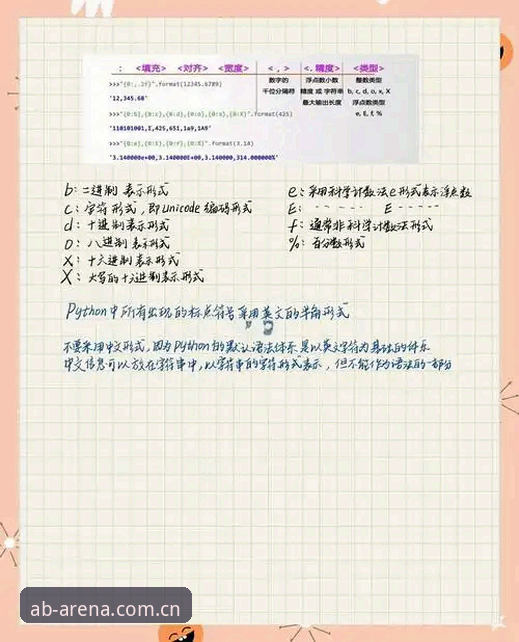 : <填充> <对齐> <宽度> <,> <.精度> <类型>
数字的 浮点数小数 整数类型
千位分隔符 精度 或 字符串 b, c, d, o, x, X
最大输出长度 浮点数类型
e, E, f, %
>>>"{0:,.2f}".format(12345.6789)
'12,345.68'
>>>"{0:b},{0:c},{0:d},{0:o},{0:x},{0:X}".format(425)
'110101001,Σ,425,651,1a9,1A9'
>>>"{0:e},{0:E},{0:f},{0:%}".format(3.14)
'3.140000e+00,3.140000E+00,3.140000,314.000000%'
b: 二进制 表示形式 e: 采用科学计数法e形式表示浮点数
c: 字符形式, 即Unicode编码形式 E: - - - - - E - - - - -
d: 十进制表示形式 f: 通常非科学计数法形式
o: 八进制 表示形式 %: 百分数形式
x: 十六进制表示形式
X: 大写的十六进制表示形式
Python中所有出现的标点符号采用英文的半角形式
, 。
不要采用中文形式, 因为Python的默认语法体系是以英文字符为基础的体系
中文信息可以放在字符串中, 以字符串的字符形式表示, 但不能作为语法的一部分
ab-arena.com.cn